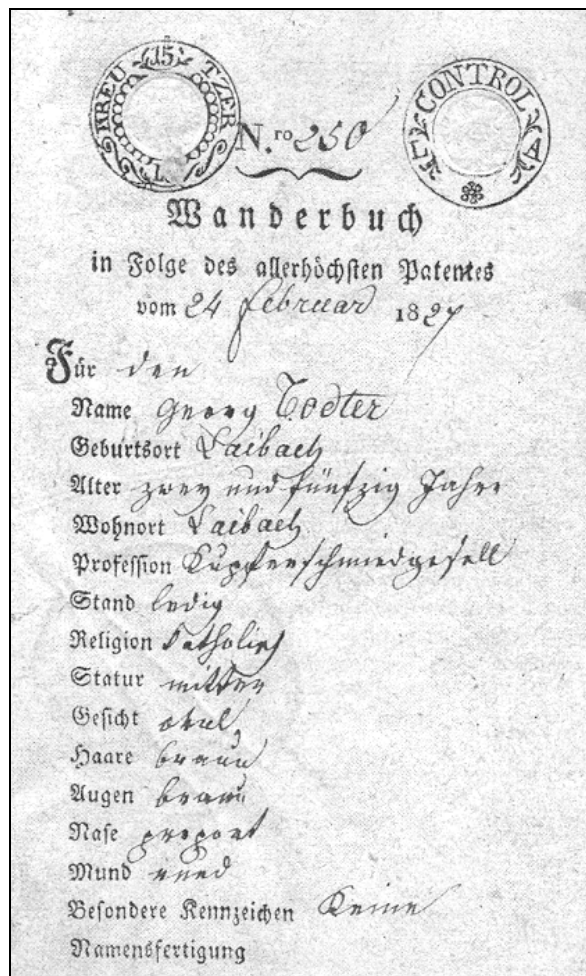 KREU 15 TZER
L.
CONTROL
L A
N.ro 250
Wanderbuch
in Folge des allerhöchsten Patentes
vom 24 Februar 1827
Für den
Name Georg Todter
Geburtsort Laibach
Alter zwey und fünfzig Jahre
Wohnort Laibach
Profession Kupferschmiedgesell
Stand ledig
Religion Katholisch
Statur mitter
Gesicht oval
Haare braun
Augen braun
Nase proport
Mund rund
Besondere Kennzeichen Keine
Namensfertigung